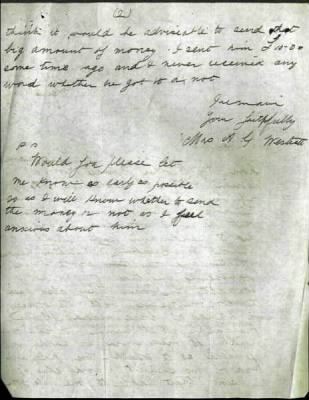 (2)
think it would be adviseable to send that
big amount of money. I sent him £10-0-0
some time ago and I never received any
word whether he got to or not
I remain
Your faithfully
Mrs A G
P S
Would you please let
me know as early as posible
so as I will know whether to send
the money or not as I feel
anxious about him